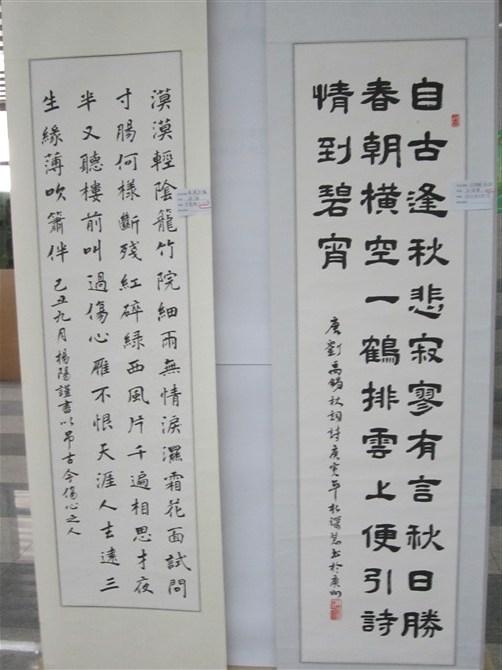 自古逢秋悲寂寥有言秋日勝
春朝橫空一鶴排雲上便引詩
情到碧宵
唐劉禹錫秋詞詩庚寅年 書於廣州
漠漠輕陰籠竹院細雨無情淚濕霜花面試問
寸腸何樣斷殘紅碎綠西風片千遍相思才夜
半又聽樓前叫過傷心雁不恨天涯人去遠三
生緣薄吹簫伴 己丑九月楊陽謹書以吊古今傷心之人